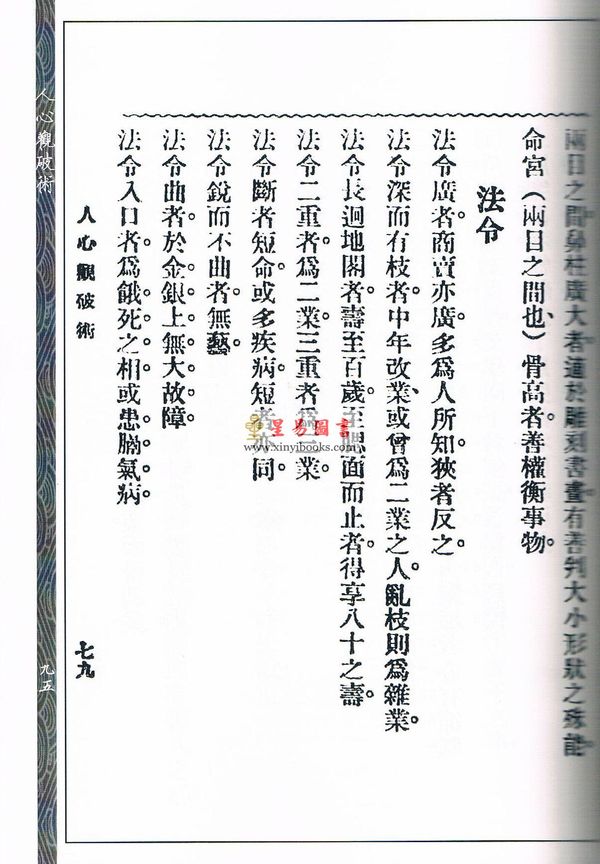 兩目之間鼻柱廣大者適於雕刻書畫有善判大小形狀之殊能。
命宮（兩目之間也）骨高者善權衡事物。
法令
法令廣者商賣亦廣多爲人所知狹者反之。
法令深而有枝者中年改業、或曾爲二業之人。亂枝則爲雜業。
法令長迴地閣者。壽至百歲。至 面而止者。得享八十之壽。
法令二重者。爲二業三重者爲三業
法令斷者短命或多疾病短者亦同
法令銳而不曲者無藝。
法令曲者。於金銀上無大故障。
法令入口者。爲餓死之相。或患膈氣病。
人心觀破術
七九
人心觀破術
九五
星易圖書
www.xinyibooks.com